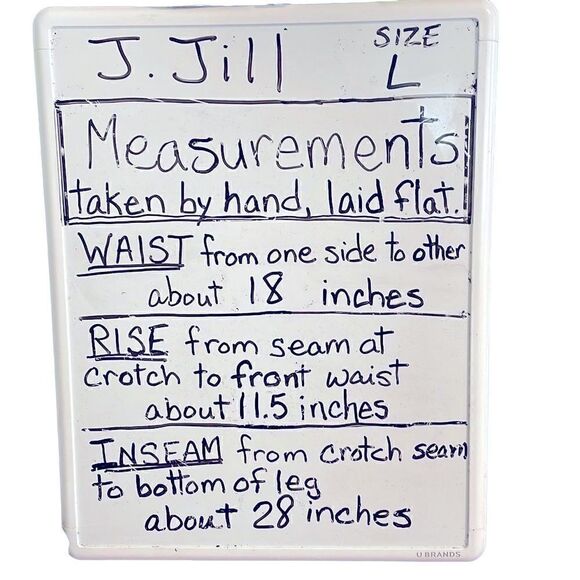 J. Jill
SIZE
L
Measurements
taken by hand, laid flat.
WAIST from one side to other
about 18 inches
RISE from seam at
crotch to front waist
about 11.5 inches
INSEAM from crotch seam
to bottom of leg
about 28 inches
U BRANDS